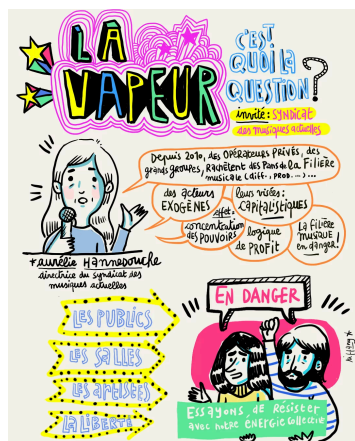 LA
VAPEUR
C'EST
QUOI LA
QUESTION ?
invité : SYNDICAT
des musiques actuelles
Depuis 2010, des OPÉRATEURS PRIVÉS, des
grands groupes, Rachètent des Pans de la Filière
musicale (diff., PROD. ...) ...
des acteurs
EXOGÈNES
leurs visées :
CAPITALISTIQUES
effet :
concentration
des POUVOIRS
logique
de PROFIT
La filière
musique
en danger !
+ aurélie Hannedouche
directrice du syndicat des
musiques actuelles
LES PUBLICS
LES SALLES
LES ARTISTES
LA LIBERTÉ
EN DANGER
Essayons de Résister
avec notre ÉNERGIE collective